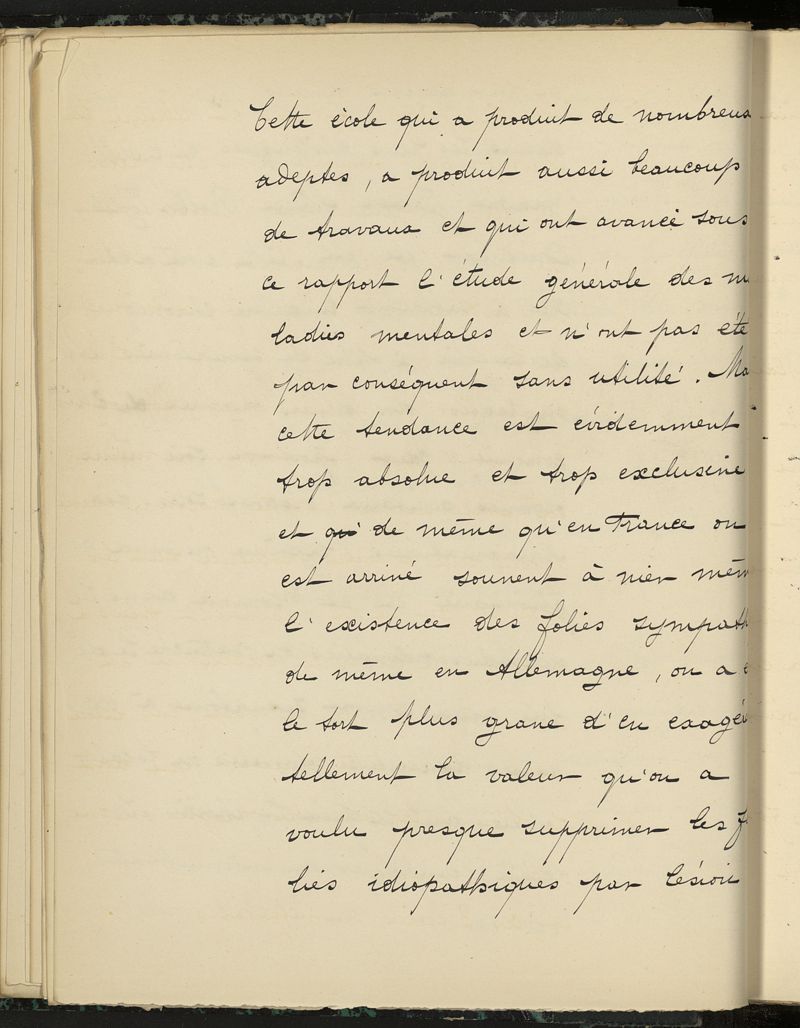 Cette école qui a produit de nombreux
adeptes, a produit aussi beaucoup
de travaux et qui ont avancé sous
ce rapport l'étude générale des m
ladies mentales et n'ont pas été
par conséquent sans utilité. Ma
cette tendance est évidemment
trop absolue et trop exclusive
et qu' de même qu'en France on
est arrivé souvent à nier mêm
l'existence des folies sympath
de même en Allemagne, on a
le tort plus grave d'en exagér
tellement la valeur qu'on a
voulu presque supprimer les f
lies idiopathiques par lésion